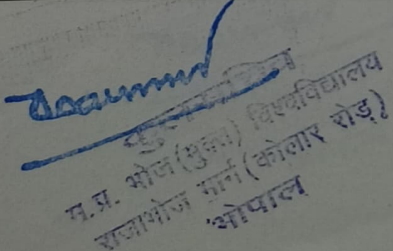 कुलसचिव
म.प्र. भोज (मुक्त) विश्वविद्यालय
राजाभोज मार्ग (कोलार रोड़)
भोपाल